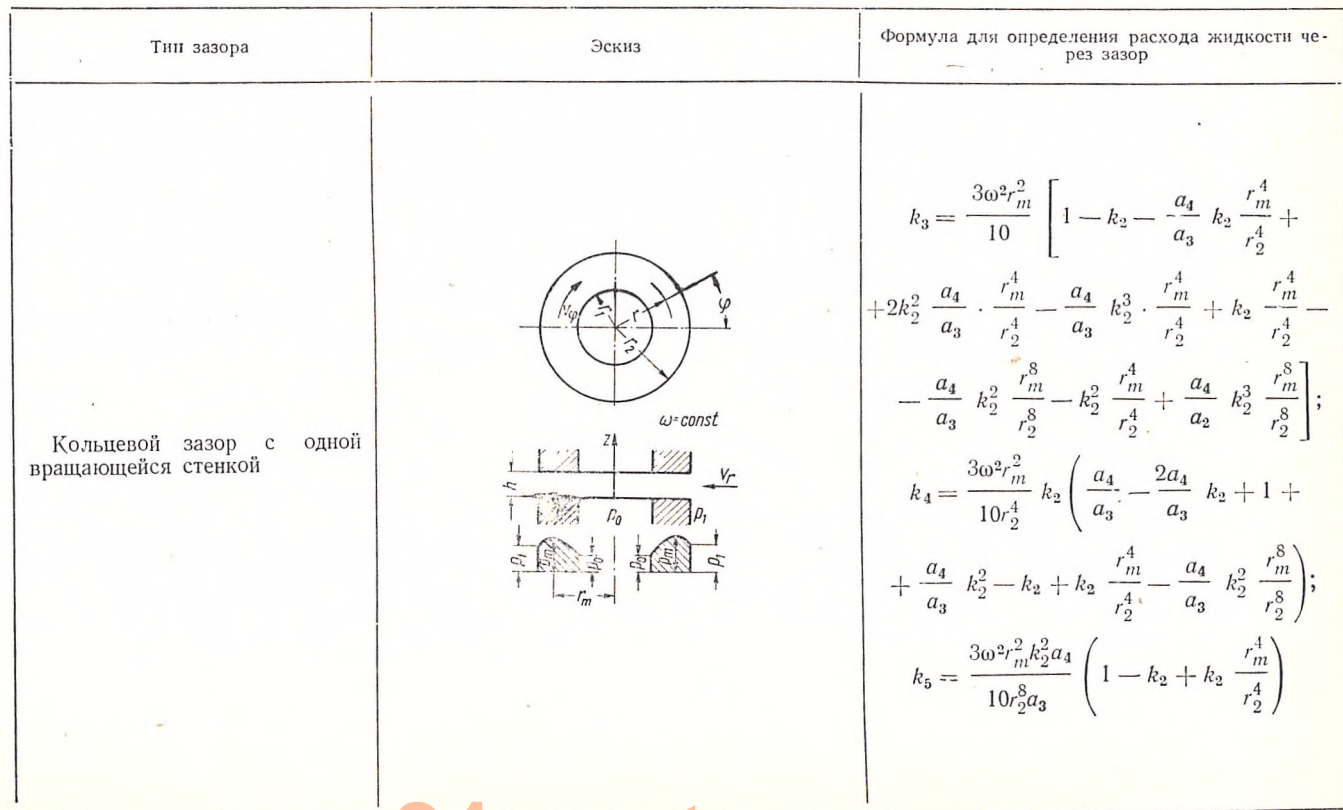 Тип зазора
Эскиз
Формула для определения расхода жидкости че-
рез зазор
Кольцевой зазор с одной
вращающейся стенкой
v_φ
r_1
r
r_2
φ
ω=const
z
h
v_r
p_0
p_1
p_1 p_m p_0 p_0 p_m p_1
r_m
k_3 = \frac{3ω²r_m^2}{10} [1 — k_2 — \frac{a_4}{a_3} k_2 \frac{r_m^4}{r_2^4} +
+ 2k_2^2 \frac{a_4}{a_3} · \frac{r_m^4}{r_2^4} — \frac{a_4}{a_3} k_2^3 · \frac{r_m^4}{r_2^4} + k_2 \frac{r_m^4}{r_2^4} —
— \frac{a_4}{a_3} k_2^2 \frac{r_m^8}{r_2^8} — k_2^2 \frac{r_m^4}{r_2^4} + \frac{a_4}{a_2} k_2^3 \frac{r_m^8}{r_2^8}];
k_4 = \frac{3ω²r_m^2}{10r_2^4} k_2 (\frac{a_4}{a_3} — \frac{2a_4}{a_3} k_2 + 1 +
+ \frac{a_4}{a_3} k_2^2 — k_2 + k_2 \frac{r_m^4}{r_2^4} — \frac{a_4}{a_3} k_2^2 \frac{r_m^8}{r_2^8});
k_5 = \frac{3ω²r_m^2 k_2^2 a_4}{10r_2^8 a_3} (1 — k_2 + k_2 \frac{r_m^4}{r_2^4})